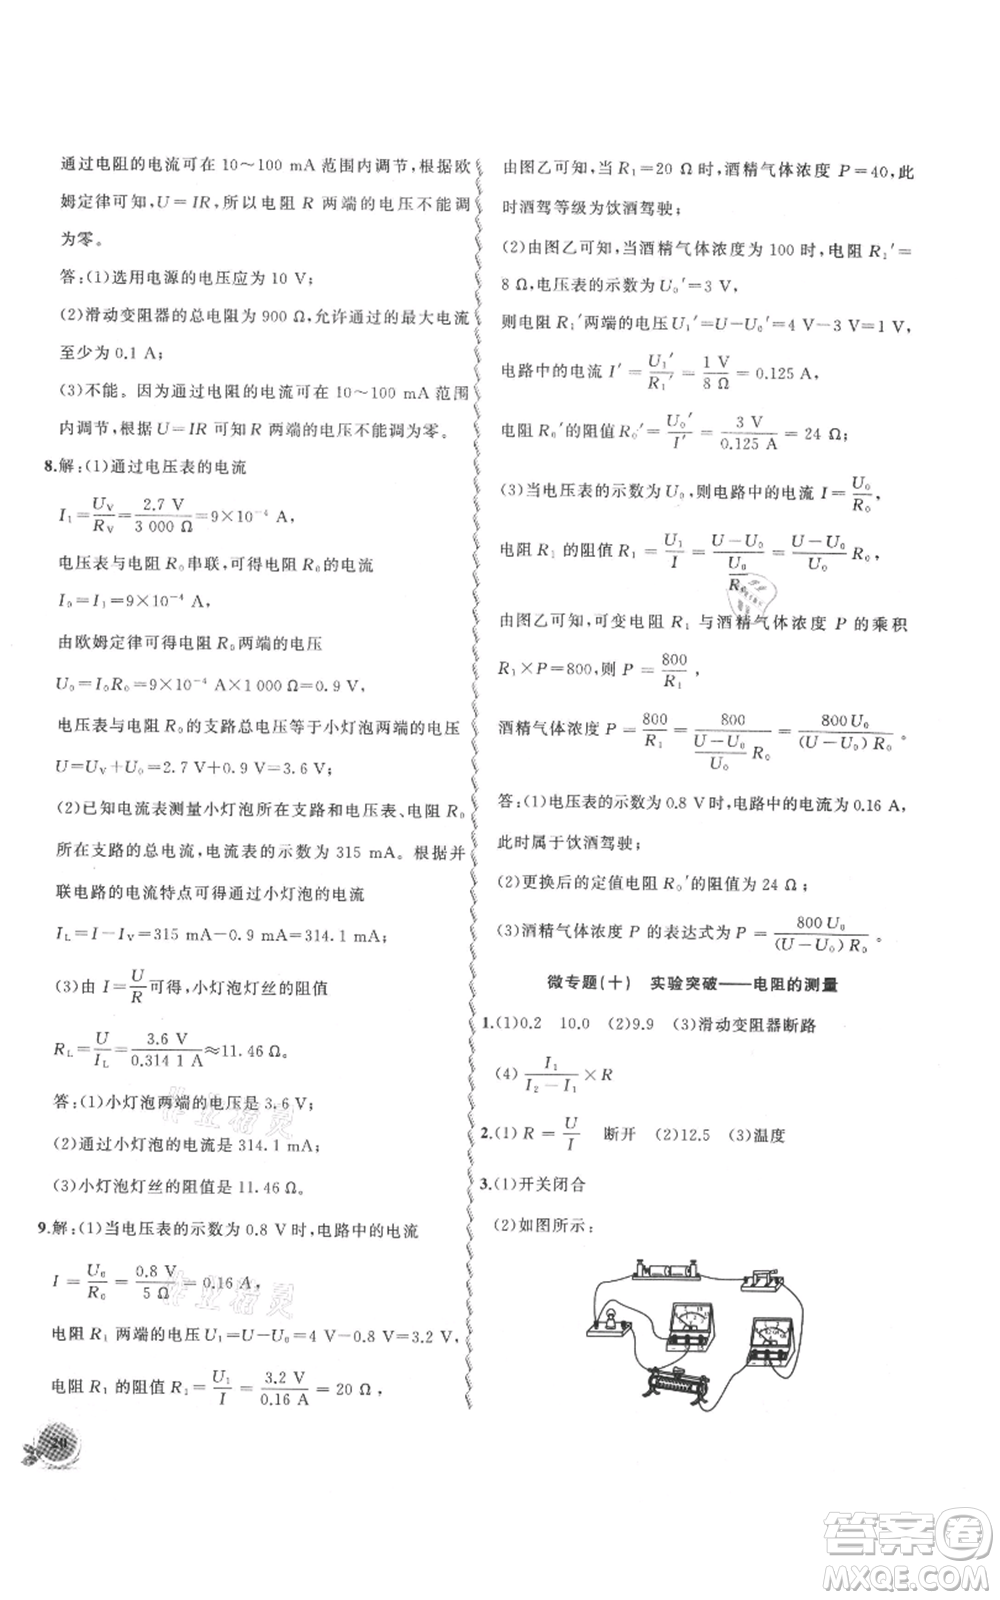 通过电阻的电流可在 10～100 mA 范围内调节,根据欧
姆定律可知,U＝IR,所以电阻 R 两端的电压不能调
为零。
答:(1)选用电源的电压应为 10 V;
(2)滑动变阻器的总电阻为 900 Ω,允许通过的最大电流
至少为 0.1 A;
(3)不能。因为通过电阻的电流可在 10～100 mA 范围
内调节,根据 U＝IR 可知 R 两端的电压不能调为零。
8.解:(1)通过电压表的电流
I₁＝U_V/R_V＝2.7 V/3 000 Ω＝9×10⁻⁴ A,
电压表与电阻 R₀串联,可得电阻 R₀的电流
I₀＝I₁＝9×10⁻⁴ A,
由欧姆定律可得电阻 R₀两端的电压
U₀＝I₀R₀＝9×10⁻⁴ A×1 000 Ω＝0.9 V,
电压表与电阻 R₀的支路总电压等于小灯泡两端的电压
U＝U_V＋U₀＝2.7 V＋0.9 V＝3.6 V;
(2)已知电流表测量小灯泡所在支路和电压表、电阻 R₀
所在支路的总电流,电流表的示数为 315 mA。根据并
联电路的电流特点可得小灯泡的电流
I_L＝I－I_V＝315 mA－0.9 mA＝314.1 mA;
(3)由 I＝U/R 可得,小灯泡灯丝的阻值
R_L＝U/I_L＝3.6 V/0.314 1 A≈11.46 Ω。
答:(1)小灯泡两端的电压是 3.6 V;
(2)通过小灯泡的电流是 314.1 mA;
(3)小灯泡灯丝的阻值是 11.46 Ω。
9.解:(1)当电压表的示数为 0.8 V 时,电路中的电流
I＝U₀/R₀＝0.8 V/5 Ω＝0.16 A,
电阻 R₁ 两端的电压 U₁＝U－U₀＝4 V－0.8 V＝3.2 V,
电阻 R₁ 的阻值 R₁＝U₁/I＝3.2 V/0.16 A＝20 Ω,
20
由图乙可知,当 R₁＝20 Ω 时,酒精气体浓度 P＝40,此
时酒驾等级为饮酒驾驶;
(2)由图乙可知,当酒精气体浓度为 100 时,电阻 R₁′＝
8 Ω,电压表的示数为 U₀′＝3 V,
则电阻 R₁′两端的电压 U₁′＝U－U₀′＝4 V－3 V＝1 V,
电路中的电流 I′＝U₁′/R₁′＝1 V/8 Ω＝0.125 A,
电阻 R₀′的阻值 R₀′＝U₀′/I′＝3 V/0.125 A＝24 Ω;
(3)当电压表的示数为 U₀,则电路中的电流 I＝U₀/R₀,
电阻 R₁ 的阻值 R₁＝U₁/I＝(U－U₀)/(U₀/R₀)＝(U－U₀)/U₀ R₀,
由图乙可知,可变电阻 R₁ 与酒精气体浓度 P 的乘积
R₁×P＝800,则 P＝800/R₁,
酒精气体浓度 P＝800/R₁＝800/((U－U₀)/U₀ R₀)＝800U₀/(U－U₀)R₀。
答:(1)电压表的示数为 0.8 V 时,电路中的电流为 0.16 A,
此时属于饮酒驾驶;
(2)更换后的定值电阻 R₀′的阻值为 24 Ω;
(3)酒精气体浓度 P 的表达式为 P＝800U₀/(U－U₀)R₀。
微专题(十) 实验突破——电阻的测量
1.(1)0.2 10.0 (2)9.9 (3)滑动变阻器断路
(4) I₁/(I₂－I₁)×R
2.(1) R＝U/I 断开 (2)12.5 (3)温度
3.(1)开关闭合
(2)如图所示:
作业精灵
作业精灵
答案卷
MXQE.COM